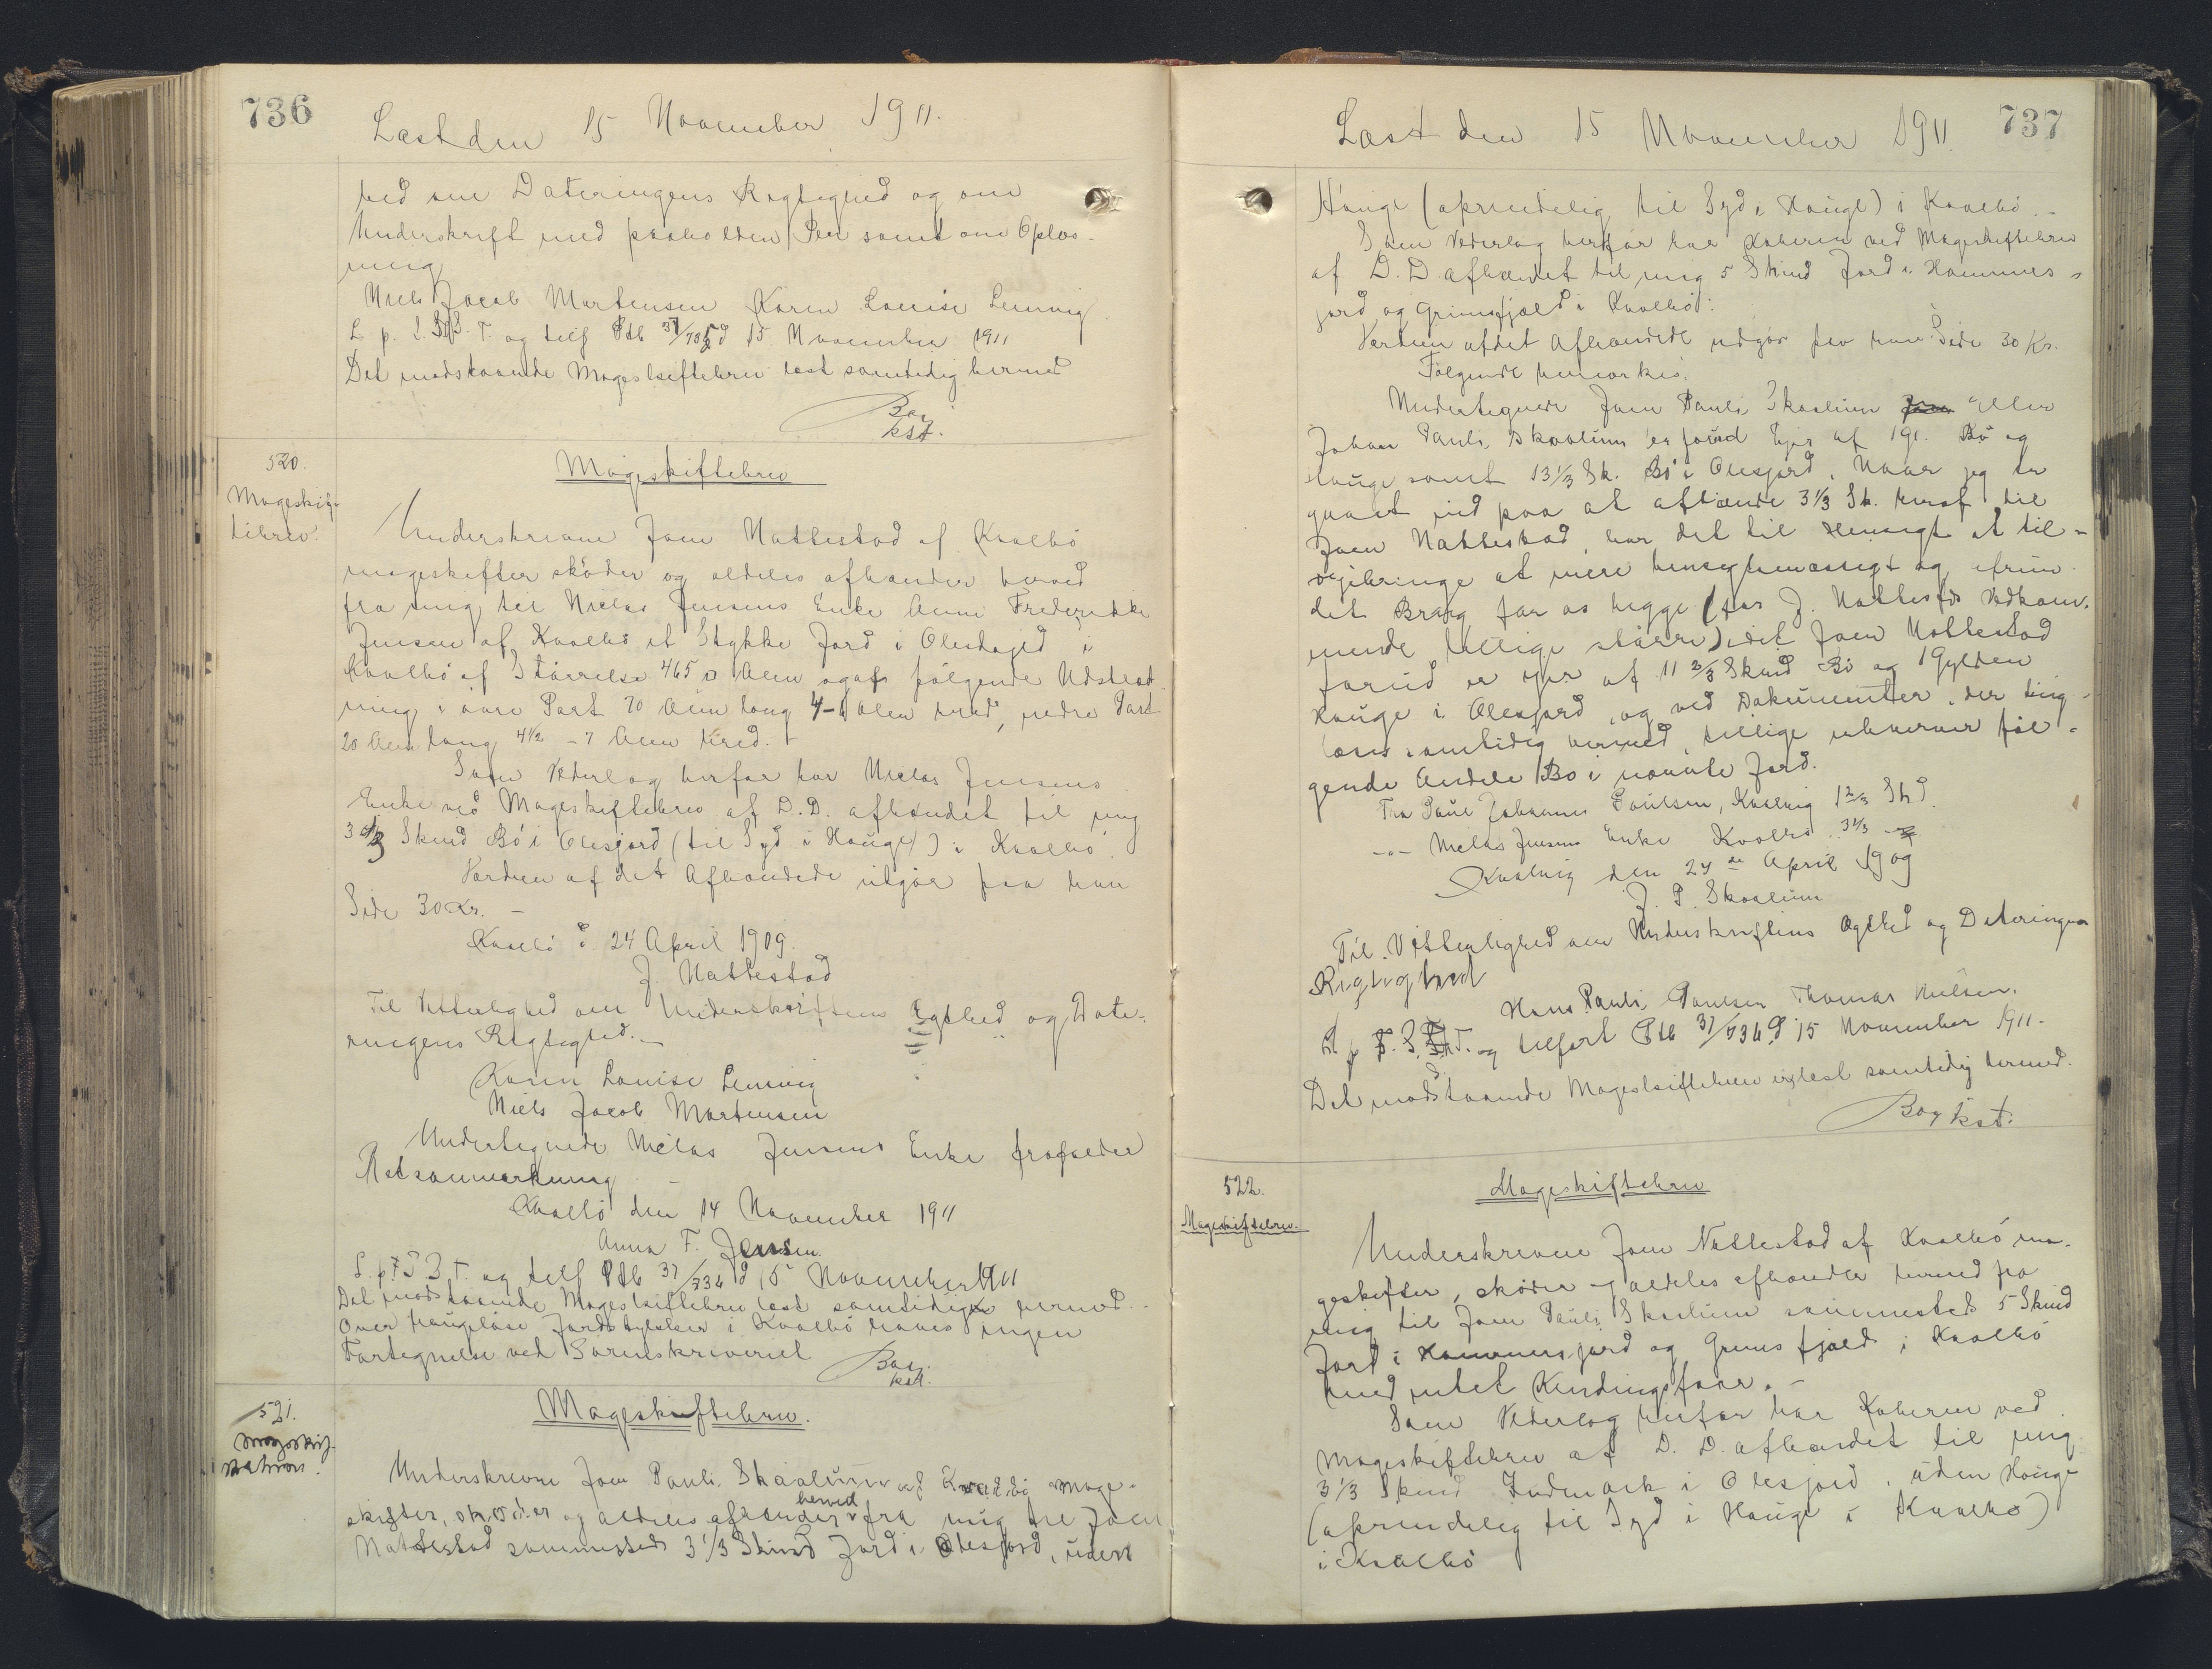 736
Læst den 15 November 1911.
hed om Dateringens Rigtighed og om
Underskrift med paaholden Pen samt om Oplæs-
ning
Niels Jacob Mortensen Karen Louise Lenvig
L. p. S. S. T. og tilf Ptb 37/735 d 15 November 1911
Det modstaaende Mageskiftebrev læst samtidig hermed
Bay
kst.
520.
Mageskif-
tebrev.
Mageskiftebrev
Underskrevne Joen Nattestad af Kvalbø
mageskifter skøder og aldeles afhænder herved
fra mig til Niclas Jensens Enke Anna Frederikke
Jensen af Kvalbø et Stykke Jord i Olesdajed i
Kvalbø af Størrelse 465 □ Alen og af følgende Udstræk
ning i øvre Part 70 Alen lang 4-6 Alen bred, nedre Part
20 Alen lang 4½ - 7 Alen bred. -
Som Vederlag herfor har Niclas Jensens
Enke ved Mageskiftebrev af D.D. afhændet til mig
3 1/3 Skind Bø i Olesjord (til Syd i Hauge) i Kvalbø.
Værdien af det Afhændede udgør paa hver
Side 30 Kr. -
Kvalbø d. 24 April 1909.
J. Nattestad
Til Vitterlighed om Underskriftens Ægthed og Date-
ringens Rigtighed. -
Karen Louise Lenvig
Niels Jacob Mortensen
Undertegnede Niclas Jensens Enke frafalder
Retsanmærkning -
Kvalbø den 14 November 1911
Anna F. Jensen.
L. p. F S S. T. og tilf Ptb 37/736 d 15 November 1911
Det modstaaende Mageskiftebrev læst samtidig hermed.
Over haugeløse Jordstykker i Kvalbø haves ingen
Fortegnelse ved Sorenskriveriet
Bay.
kst.
521.
Mageskif-
tebrev.
Mageskiftebrev.
Underskrevne Joen Pauli Skaalum af Kvalvig mage-
skifter, skøder og aldeles afhænder herved fra mig til Joen
Nattestad sammesteds 3 1/3 Skind Jord i Olesjord, uden
737
Læst den 15 November 1911.
Hauge (oprindelig til Syd i Hauge) i Kvalbø. -
Som Vederlag herfor har Køberen ved Mageskiftebrev
af D. D afhændet til mig 5 Skind Jord i Hammers-
jord og Grimsfjæld i Kvalbø.
Værdien af det Afhændede udgør paa hver Side 30 Kr.
Følgende bemærkes.
Undertegnede Joen Pauli Skaalum eller
Johan Pauli Skaalum er forud Ejer af 1 Gl. Bø og
Hauge samt 13 1/3 Sk. Bø i Olesjord. Naar jeg er
gaaet ind paa at afhænde 3 1/3 Sk. heraf til
Joen Nattestad, har det til Hensigt at til-
vejebringe et mere hensigtsmæssigt og afrun-
det Brug for os begge (for J. Nattestads Vedkom-
mende tillige større) idet Joen Nattestad
forud er Ejer af 11 2/3 Skind Bø og 1 Gylden
Hauge i Olesjord, og ved Dokumenter, der ting-
læses samtidig hermed, tillige erhverver føl-
gende Andele Bø i nævnte Jord.
Fra Poul Johannes Poulsen, Kvalvig 1 2/3 Skd.
-"- Niclas Jensens Enke Kvalbø 3 1/3 -"-
Kvalvig den 24de April 1909
J. P. Skaalum
Til Vitterlighed om Underskriftens Ægthed og Dateringens
Rigtighed
Hans Pauli Poulsen Thomas Nielsen.
L p F. S. S. T. og tilført Ptb 37/736 d 15 November 1911-
Det modstaaende Mageskiftebrev er læst samtidig hermed.
Bay kst.
522.
Mageskiftebrev.
Mageskiftebrev
Underskrevne Joen Nattestad af Kvalbø ma-
geskifter, skøder og aldeles afhænder herved fra
mig til Joen Pauli Skaalum sammesteds 5 Skind
Jord i Hammersjord og Grimsfjæld i Kvalbø
med intet Kendingsfaar. -
Som Vederlag herfor har Køberen ved
Mageskiftebrev af D. D. afhændet til mig
3 1/3 Skind Indmark i Olesjord, uden Hauge
(oprindelig til Syd i Hauge i Kvalbø)
i Kvalbø